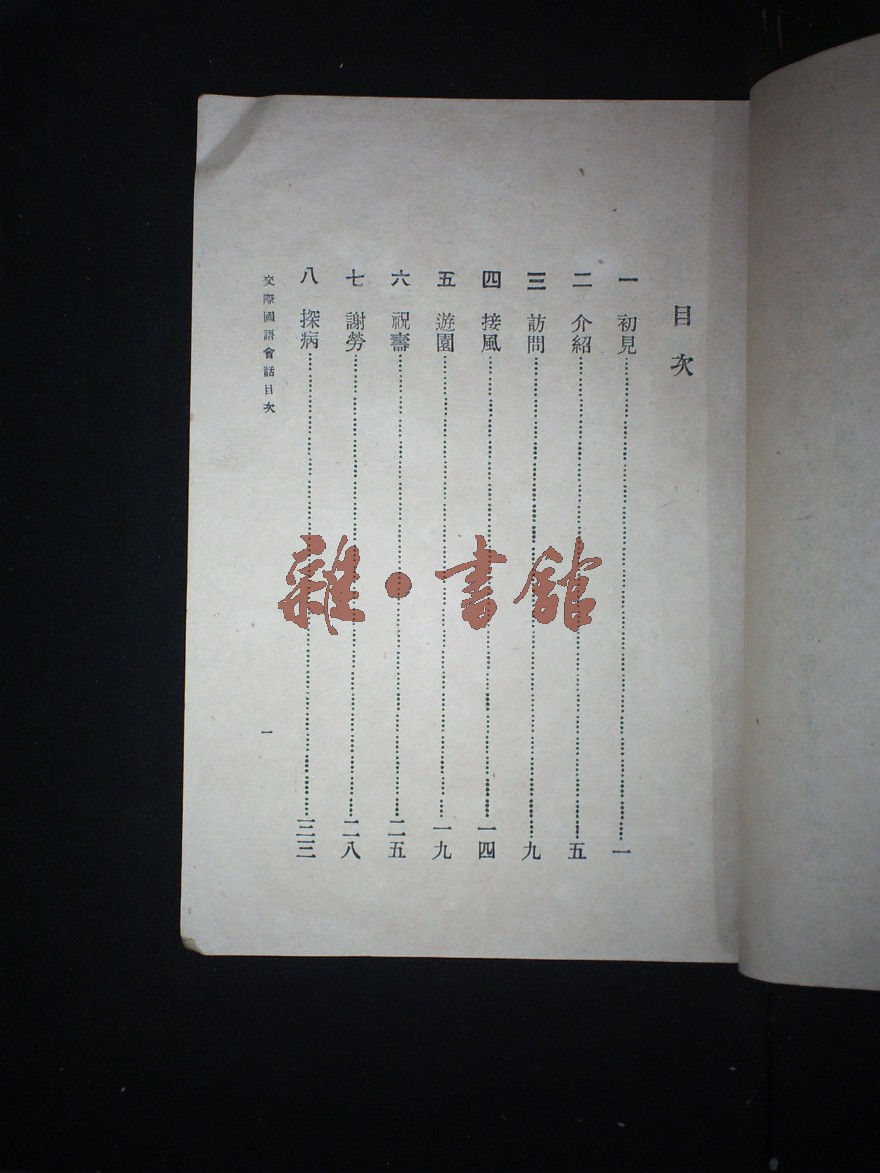 目次
一 初見……一
二 介紹……五
三 訪問……九
四 接風……一四
五 遊園……一九
六 祝壽……二五
七 謝勞……二八
八 探病……三三
交際國語會話目次
一
雜·書館